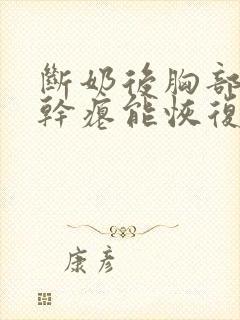 斷奶後胸部
幹癟能恢復
康彥